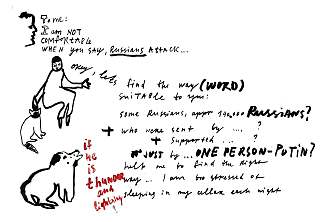 I am NOT
COMFORTABLE
WHEN YOU SAY, Russians ATTACK...
okay, let's find the way (WORD)
SUITABLE to you:
some Russians, appr 140,000 RUSSIANS?
+ who were sent by .... ?
+ supported ... ?
JUST by ... ONE PERSON-PUTIN?
help me to find the right
way... I am so stressed of
sleeping in my cellar each night
if
he
is
thunder
and
lightning